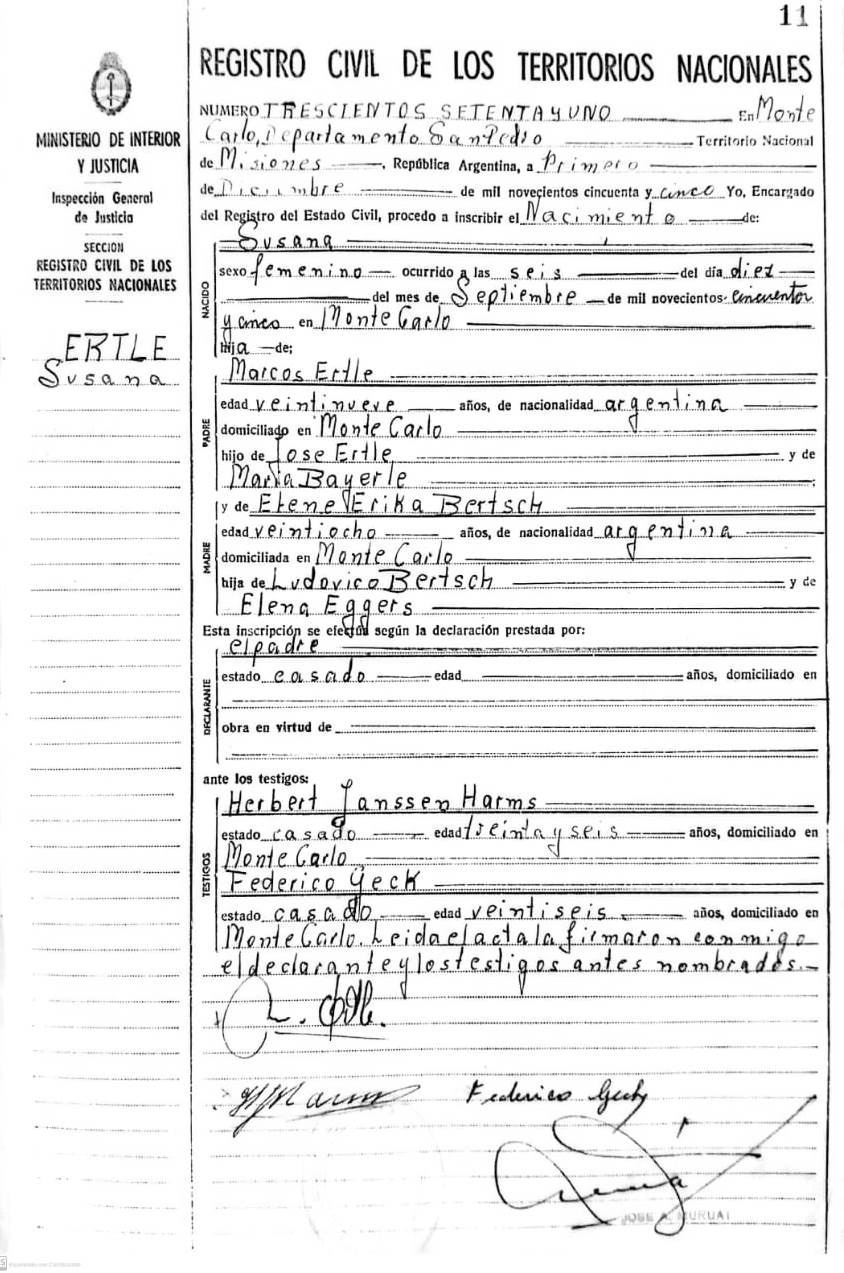 11
REGISTRO CIVIL DE LOS TERRITORIOS NACIONALES
MINISTERIO DE INTERIOR
Y JUSTICIA
Inspección General
de Justicia
SECCION
REGISTRO CIVIL DE LOS
TERRITORIOS NACIONALES
ERTLE
Susana
NUMERO TRESCIENTOS SETENTA y UNO En Monte
Carlo, Departamento San Pedro Territorio Nacional
de Misiones, República Argentina, a Primero
de Diciembre de mil novecientos cincuenta y cinco Yo, Encargado
del Registro del Estado Civil, procedo a inscribir el Nacimiento de:
NACIDO
Susana
sexo femenino ocurrido a las seis del día diez
del mes de Septiembre de mil novecientos cincuenta
y cinco en Monte Carlo
hija de;
PADRE
Marcos Ertle
edad veintinueve años, de nacionalidad argentina
domiciliado en Monte Carlo
hijo de Jose Ertle y de
Maria Bayerle
y de Elene Erika Bertsch
MADRE
edad veintiocho años, de nacionalidad argentina
domiciliada en Monte Carlo
hija de Ludovico Bertsch y de
Elena Eggers
Esta inscripción se efectúa según la declaración prestada por:
el padre
DECLARANTE
estado casado edad años, domiciliado en
obra en virtud de
ante los testigos:
TESTIGOS
Herbert Janssen Harms
estado casado edad treinta y seis años, domiciliado en
Monte Carlo
Federico Geck
estado casado edad veintiseis años, domiciliado en
Monte Carlo. Leida el acta la firmaron conmigo
el declarante y los testigos antes nombrados.
Federico Geck
JOSE A. MURUAT